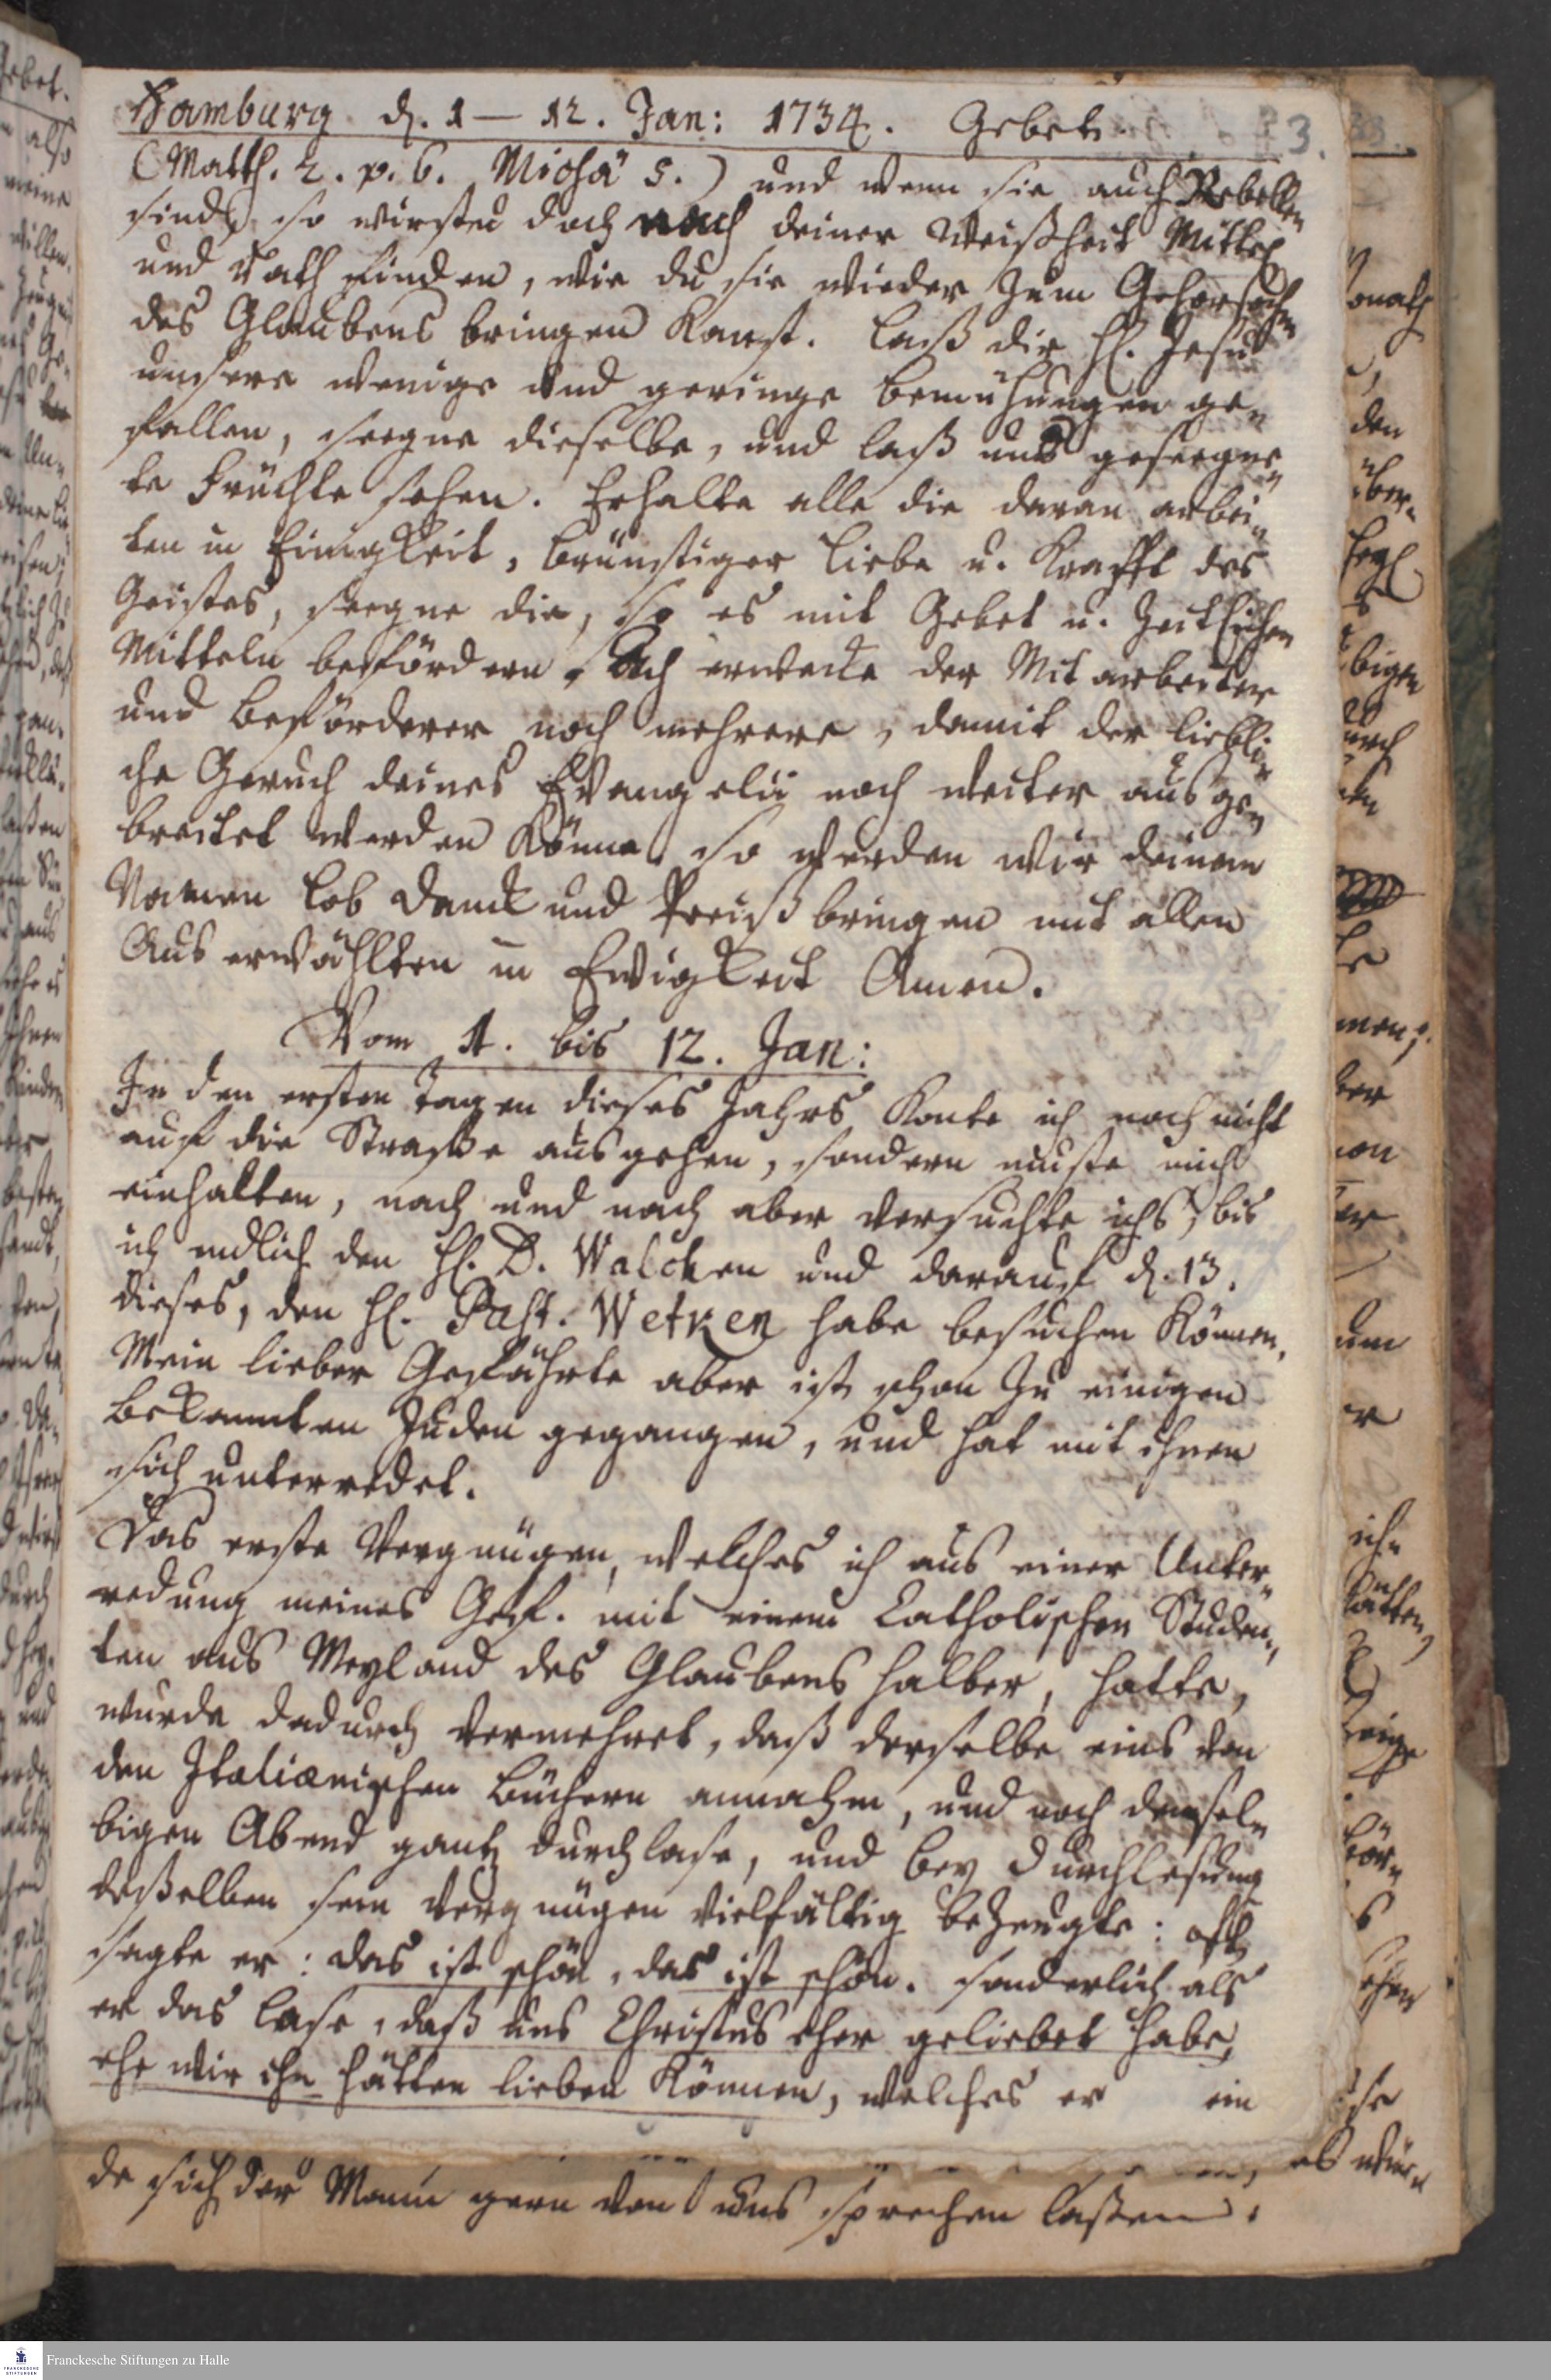 Hamburg d. 1 – 12. Jan: 1734. Gebet. 3.
(Matth. 2. p. 6. Michä 5.) und wenn sie auch Rebellen
sind, so wirstu doch nach deiner Weißheit Mittel
und Rath finden, wie du sie wieder zum Gehorsahm
des Glaubens bringen kanst. Laß dir H. Jesu
unsere wenige und geringe Bemühungen ge-
fallen, seegne dieselbe, und laß uns geseegne-
te Früchte sehen. Erhalte alle die daran arbei-
ten in Einigkeit, brünstiger Liebe u. Krafft des
Geistes, seegne die, so es mit Gebet u. zeitlichen
Mitteln befördern, Ach erwecke der Mitarbeiter
und Beförderer noch mehrere, damit der liebli-
che Geruch deines Evangelii noch weiter ausge-
breitet werden könne, so werden wir deinem
Namen Lob Danck und Preiß bringen mit allen
Auserwählten in Ewigkeit Amen.
Vom 1. bis 12. Jan:
In den ersten Tagen dieses Jahrs konte ich noch nicht
auf die Straße ausgehen, sondern muste mich
einhalten, nach und nach aber versuchte ichs, bis
ich endlich den H. D. Walchen und darauf d. 13.
dieses, den H. Past. Wetken habe besuchen können.
Mein lieber Gefährte aber ist schon zu einigen
bekannten Juden gegangen, und hat mit ihnen
sich unterredet.
Das erste Vergnügen, welches ich aus einer Unter-
redung meines Gef. mit einem Catholischen Studen-
ten aus Meyland des Glaubens halber, hatte,
wurde dadurch vermehret, daß derselbe eins von
den Italiænischen Büchern annahm, und noch densel-
bigen Abend gantz durchlase, und bey Durchlesung
deßelben sein Vergnügen vielfältig bezeugte: oft
sagte er: das ist schön, das ist schön. sonderlich als
er das lase, daß uns Christus eher geliebet habe,
ehe wir ihn hätten lieben können, welches er ein
de sich der Mann gern von uns sprechen laßen.
Franckesche Stiftungen zu Halle